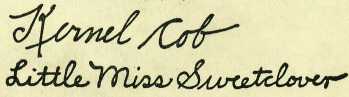 Kernel Cob
Little Miss Sweetclover